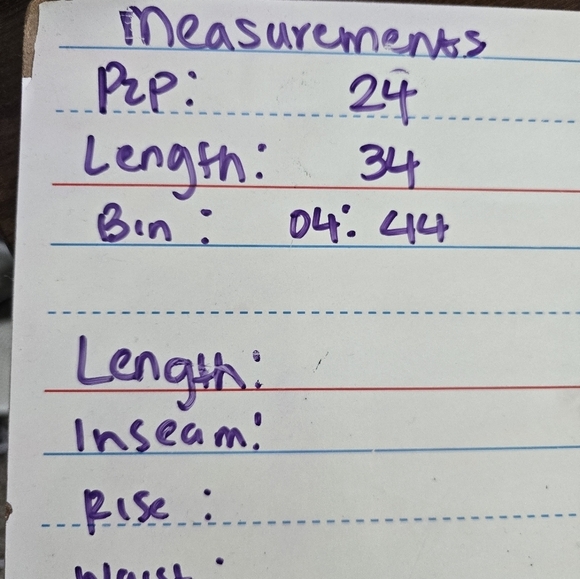 Measurements
P2P: 24
Length: 34
Bin : 04: 44
Length:
Inseam:
Rise :
Waist :